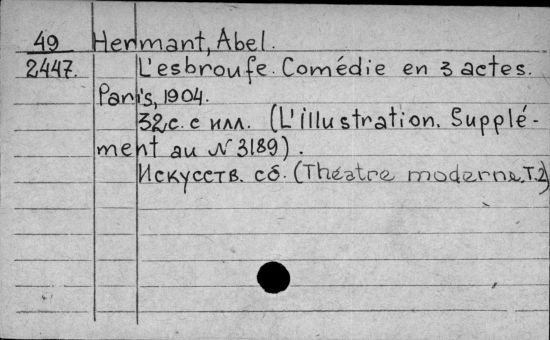 49 Hermant, Abel.
2447. L'esbroufe. Comédie en 3 actes.
Paris, 1904.
32 с. с илл. (L'illustration. Supplé-
ment au N 3189).
Искусств. сб. (Théatre moderne. T.2)